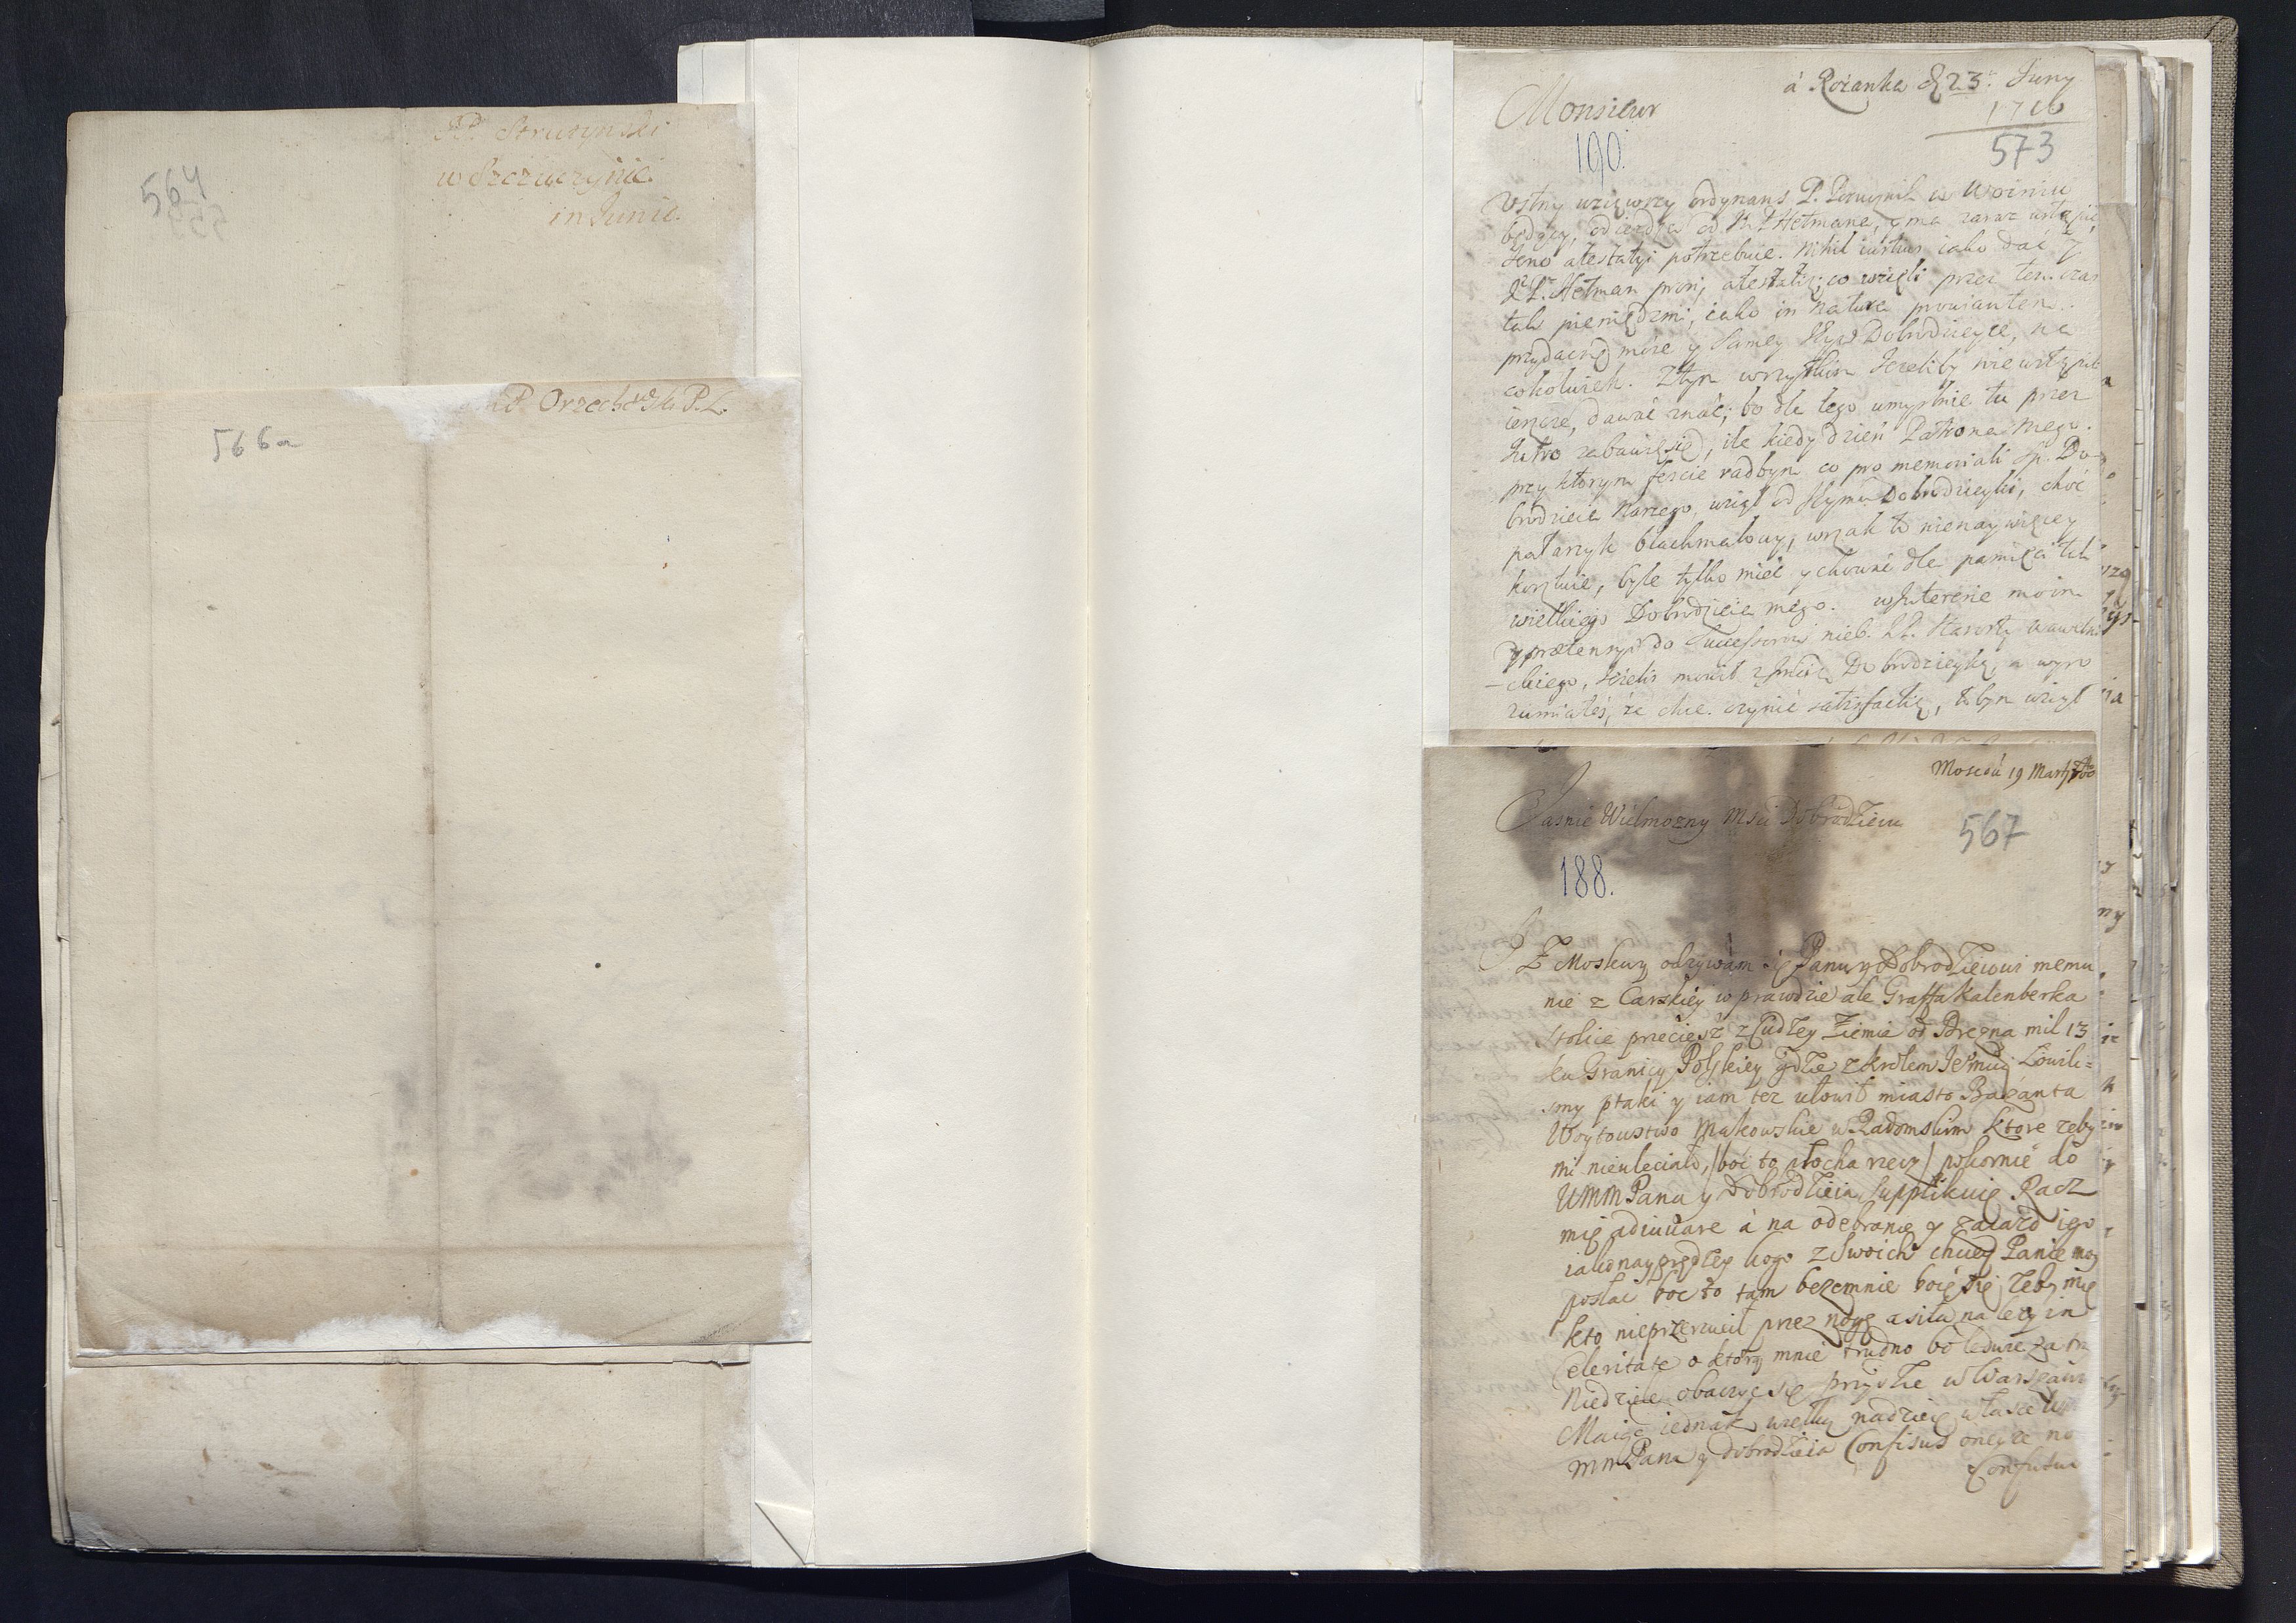 564
P. Struszynski
w Szczuczynie
in Junio.
P Orzechowski P. L.
566a
á Rożanka d 23 Juny
1716
Monsieur
573
190.
Ustny wziąwszy ordynans P. Porucznik w Woisku
będący, odiezdza od Hetmana, y ma zaraz ustąpic,
Jeno atestatyi potrzebuie. Nihil iustius iako dać
Hetman prosi atestatię; co wzięli przez ten czas
tak pieniędzmi, iako in natura prowiantem.
przydac się może y samey Dobrodzieyce, na
cokolwiek. Z tym wszytkim Jeżeliby nie ustąpili
ieszcze, dawać znać; bo dla tego umyslnie tu przez
Jutro zabawię się, ile kiedy dzień Patrona mego.
przy ktorym fescie radbym co pro memoriali Do
brodzieia naszego, wziął od Dobrodzieyki, choć
pałaszyk blachmalowy, wszak to nienaywięcey
kosztuie, byle tylko mieć y chować dla pamięci tak
wielkiego Dobrodzieia mego. w Interesie moim
y prætensyi do Successorow nieb. Starosty
-ckiego, Jeżeliś mowił z Dobrodzieyką, a wyro
zumiałeś, że chce czynić satisfactią, tobym wziął
Moscou 19 Martij
Jasnie Wielmozny Msci Dobrodzieiu
567
188.
Z Moskwy odzywam się Panu y Dobrodzieiowi memu
nie z Carskiey wprawdzie ale Graffa Kalenberka
stolice przeciesz z Cudzey Ziemie od Drezna mil 13
ku Granicy Polskiey gdzie z krolem Jemscią Łowili=
smy ptaki y iam tez ułowił miasto Bażanta
Woytowstwo Makowskie w Radomskim ktore zeby
mi nieuleciało, /boc to płocha rzecz/ pokornie do
UMM Pana y Dobrodzieia supplikuię Racz
mię adiuuare á na odebranie y zaiazd iego
iaknayprędzey kogo z swoich chciey Panie moy
posłac boc to tam bezemnie boię się zeby mię
kto nieprzerzucił przez nogę a siła nalezy in
Celeritate o ktorą mnie trudno bo ledwie za
Niedziele obaczyc się przydzie w Warszawie
Maiąc iednak wielką nadzieię w łasce
mm Pana y dobrodzieia Confisus oney ze no
Confundar